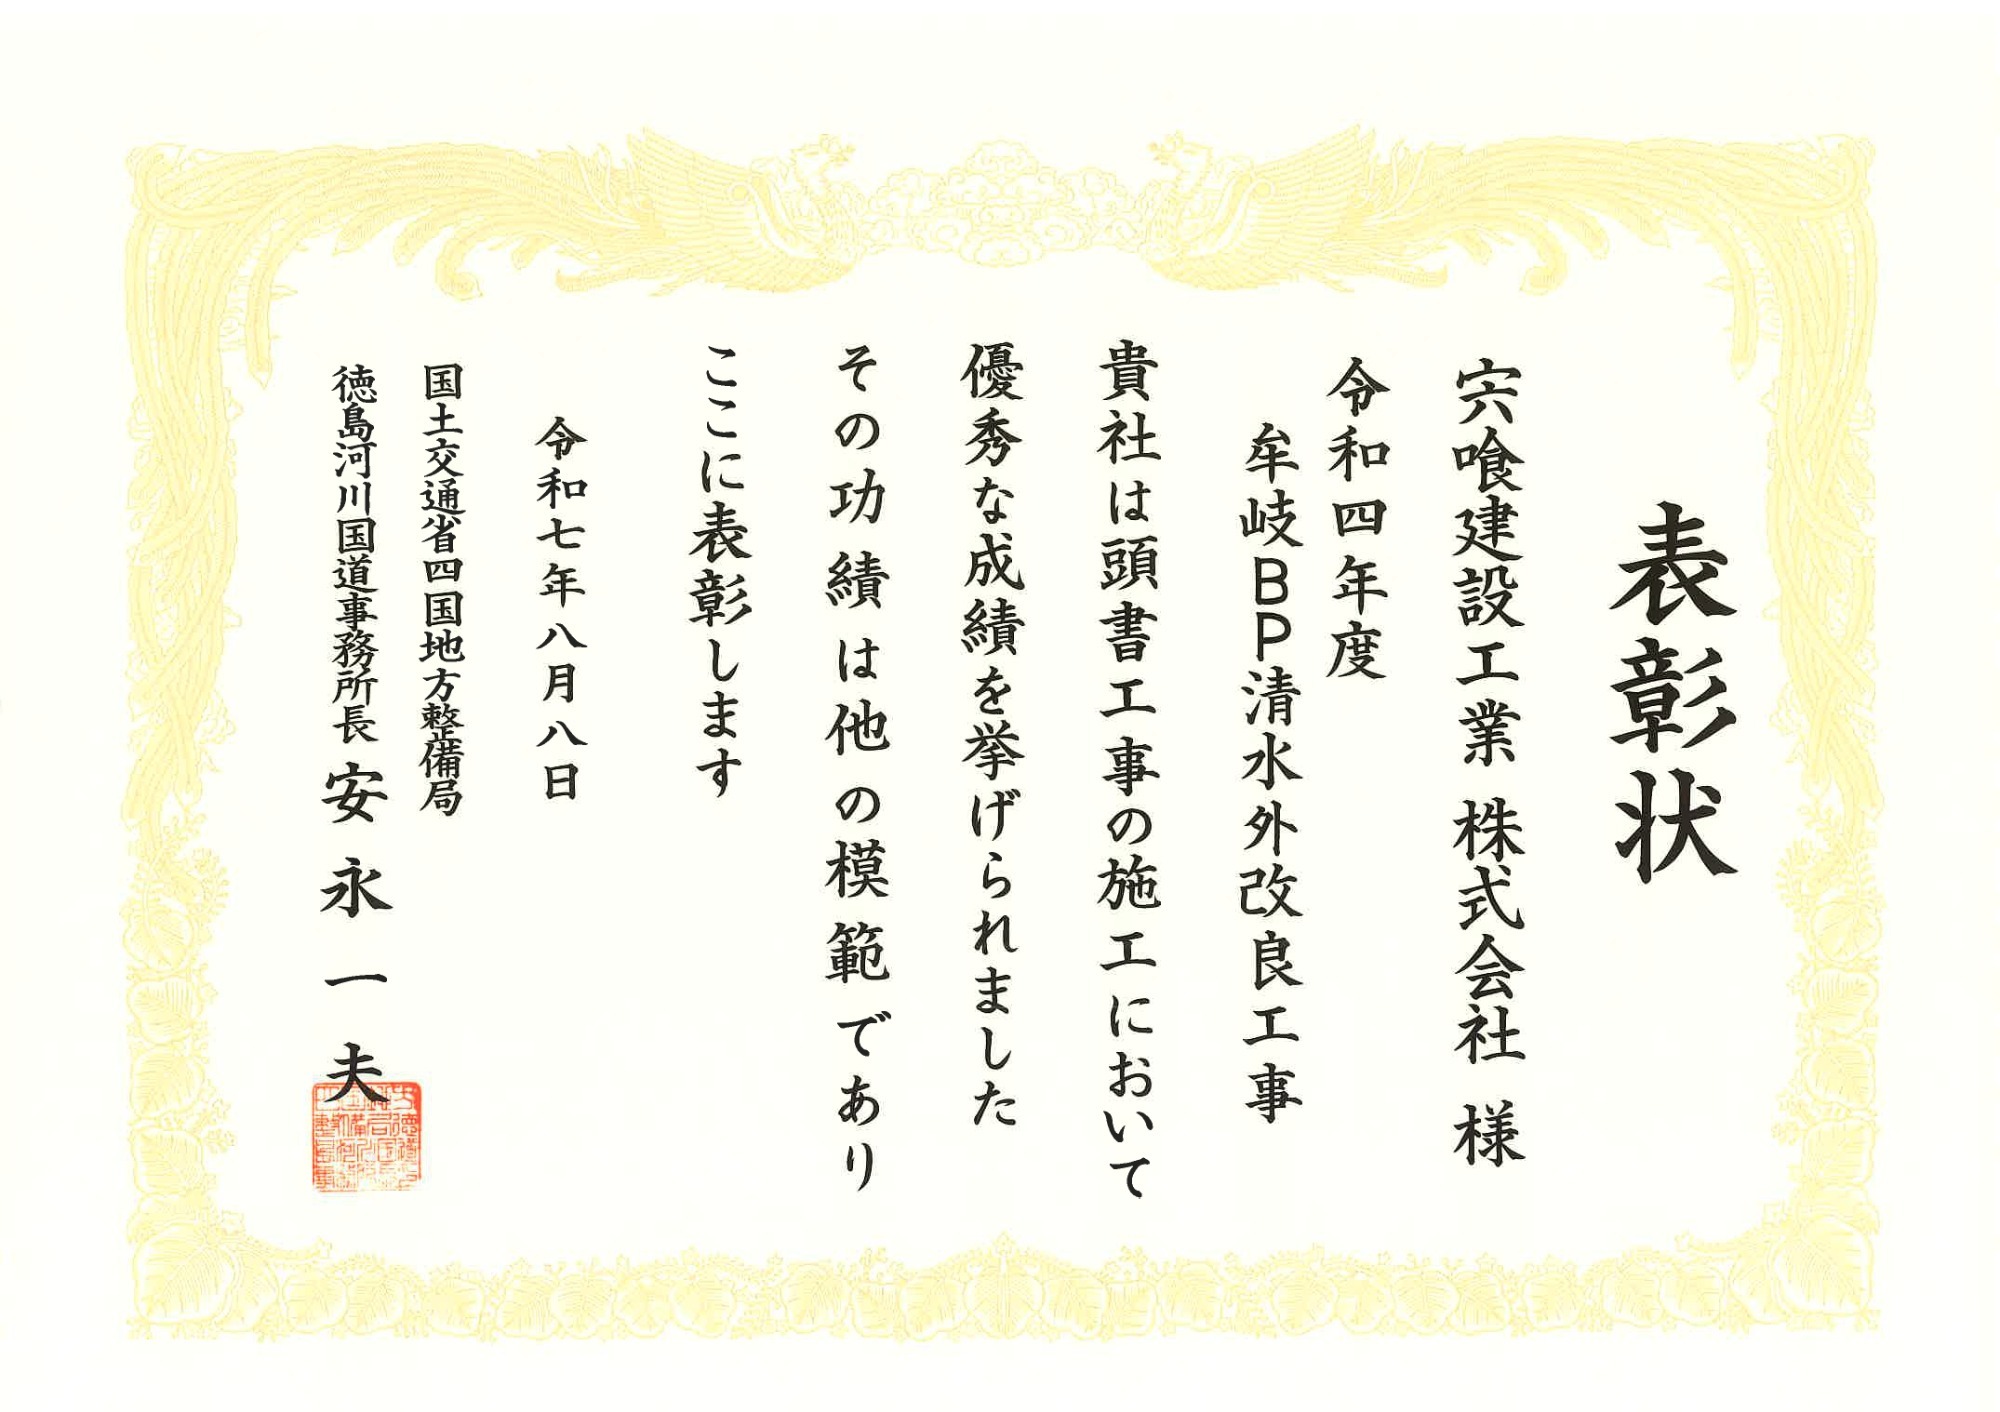 表彰状
宍喰建設工業 株式会社 様
令和四年度
牟岐BP清水外改良工事
貴社は頭書工事の施工において
優秀な成績を挙げられました
その功績は他の模範であり
ここに表彰します
令和七年八月八日
国土交通省四国地方整備局
徳島河川国道事務所長 安永一夫